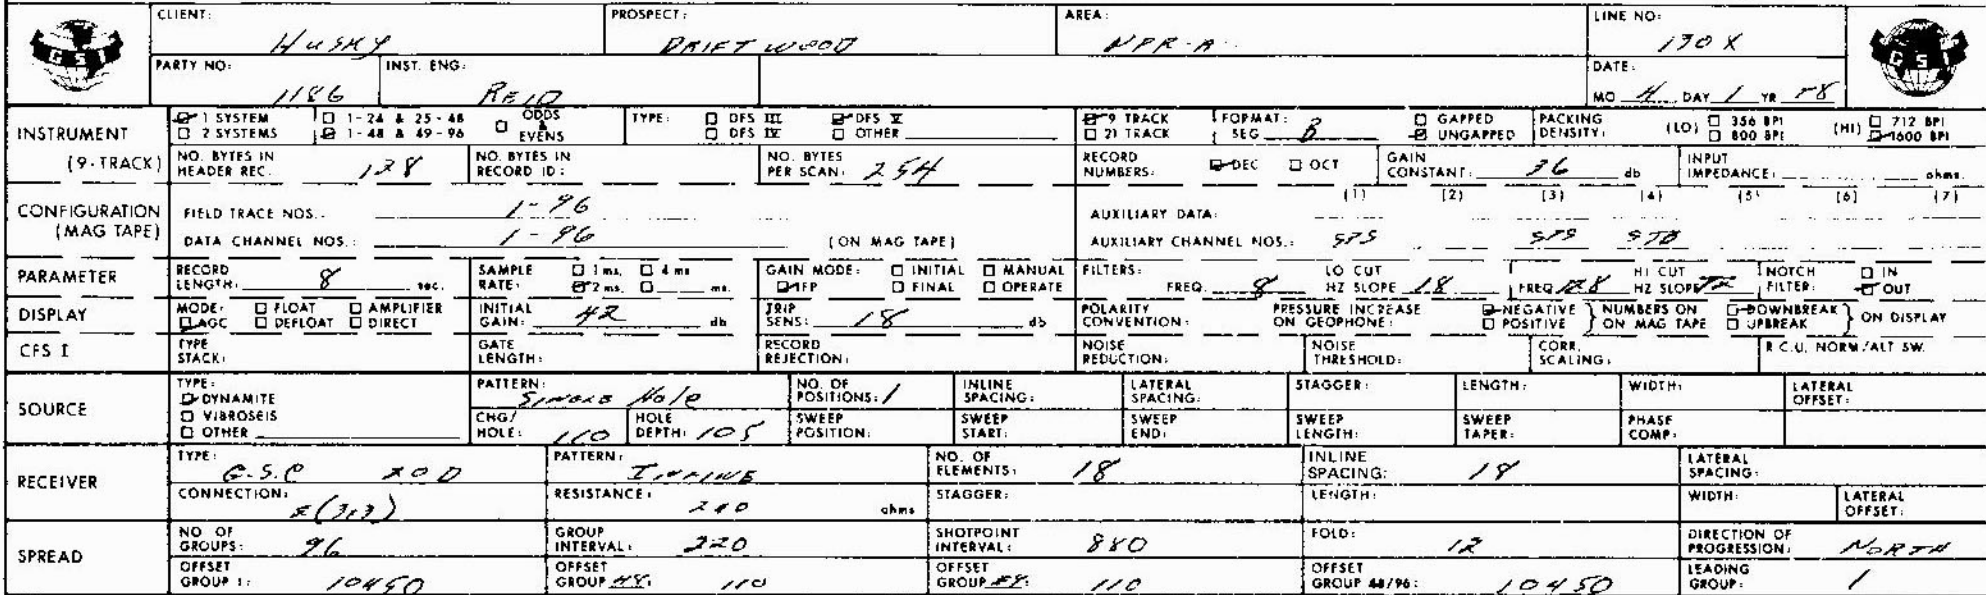 CLIENT: HUSKY PROSPECT: DRIFTWOOD AREA: NPR-A LINE NO: 130 X
GSI GSI
PARTY NO: 1186 INST. ENG: REID DATE: MO 4 DAY 1 YR 78
INSTRUMENT (9-TRACK)
1 SYSTEM 1-24 & 25-48 ODDS & EVENS TYPE: DFS III DFS V 9 TRACK FORMAT: SEG B GAPPED PACKING DENSITY: (LO) 356 BPI (HI) 712 BPI
2 SYSTEMS 1-48 & 49-96 DFS IV OTHER 21 TRACK UNGAPPED 800 BPI 1600 BPI
NO. BYTES IN HEADER REC. 128 NO. BYTES IN RECORD ID: NO. BYTES PER SCAN: 254 RECORD NUMBERS: DEC OCT GAIN CONSTANT: 36 db INPUT IMPEDANCE: ohms.
CONFIGURATION (MAG TAPE)
(1) (2) (3) (4) (5) (6) (7)
FIELD TRACE NOS.: 1-96 AUXILIARY DATA:
DATA CHANNEL NOS.: 1-96 (ON MAG TAPE) AUXILIARY CHANNEL NOS.:
PARAMETER RECORD LENGTH: 8 sec. SAMPLE RATE: 1 ms. 4 ms 2 ms. ms. GAIN MODE: INITIAL MANUAL IFP FINAL OPERATE FILTERS: FREQ. 8 LO CUT HZ SLOPE 18 FREQ 128 HI CUT HZ SLOPE 72 NOTCH FILTER: IN OUT
DISPLAY MODE: FLOAT AMPLIFIER AGC DEFLOAT DIRECT INITIAL GAIN: 42 db TRIP SENS: 18 db POLARITY CONVENTION: PRESSURE INCREASE ON GEOPHONE: NEGATIVE POSITIVE NUMBERS ON ON MAG TAPE DOWNBREAK UPBREAK ON DISPLAY
CFS I TYPE STACK: GATE LENGTH: RECORD REJECTION: NOISE REDUCTION: NOISE THRESHOLD: CORR. SCALING: R.C.U. NORM/ALT SW.
SOURCE TYPE: DYNAMITE VIBROSEIS OTHER PATTERN: SINGLE Hole NO. OF POSITIONS: 1 INLINE SPACING: LATERAL SPACING: STAGGER: LENGTH: WIDTH: LATERAL OFFSET:
CHG/HOLE: 110 HOLE DEPTH: 105 SWEEP POSITION: SWEEP START: SWEEP END: SWEEP LENGTH: SWEEP TAPER: PHASE COMP:
RECEIVER TYPE: G.S.C 20D PATTERN: INLINE NO. OF ELEMENTS: 18 INLINE SPACING: 18 LATERAL SPACING:
CONNECTION: RESISTANCE: 240 ohms STAGGER: LENGTH: WIDTH: LATERAL OFFSET:
SPREAD NO. OF GROUPS: 96 GROUP INTERVAL: 220 SHOTPOINT INTERVAL: 880 FOLD: 12 DIRECTION OF PROGRESSION: NORTH
OFFSET GROUP 1: 10450 OFFSET GROUP 110 OFFSET GROUP 110 OFFSET GROUP 48/96: 10450 LEADING GROUP: 1